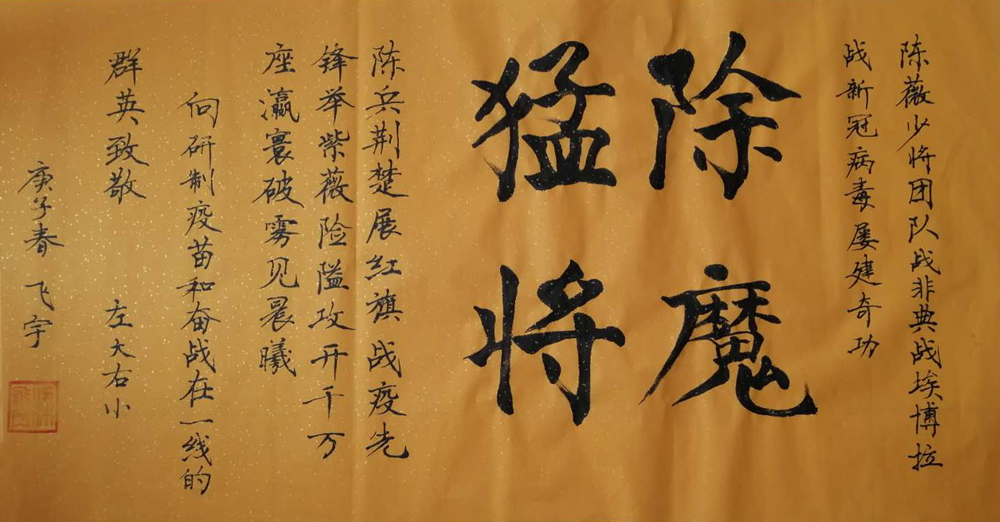 陈薇少将团队战非典战埃博拉
战新冠病毒屡建奇功
除魔
猛将
陈兵荆楚展红旗战疫先
锋举紫薇险隘攻开千万
座瀛寰破雾见晨曦
向研制疫苗和奋战在一线的
群英致敬
左大右小
庚子春飞宇